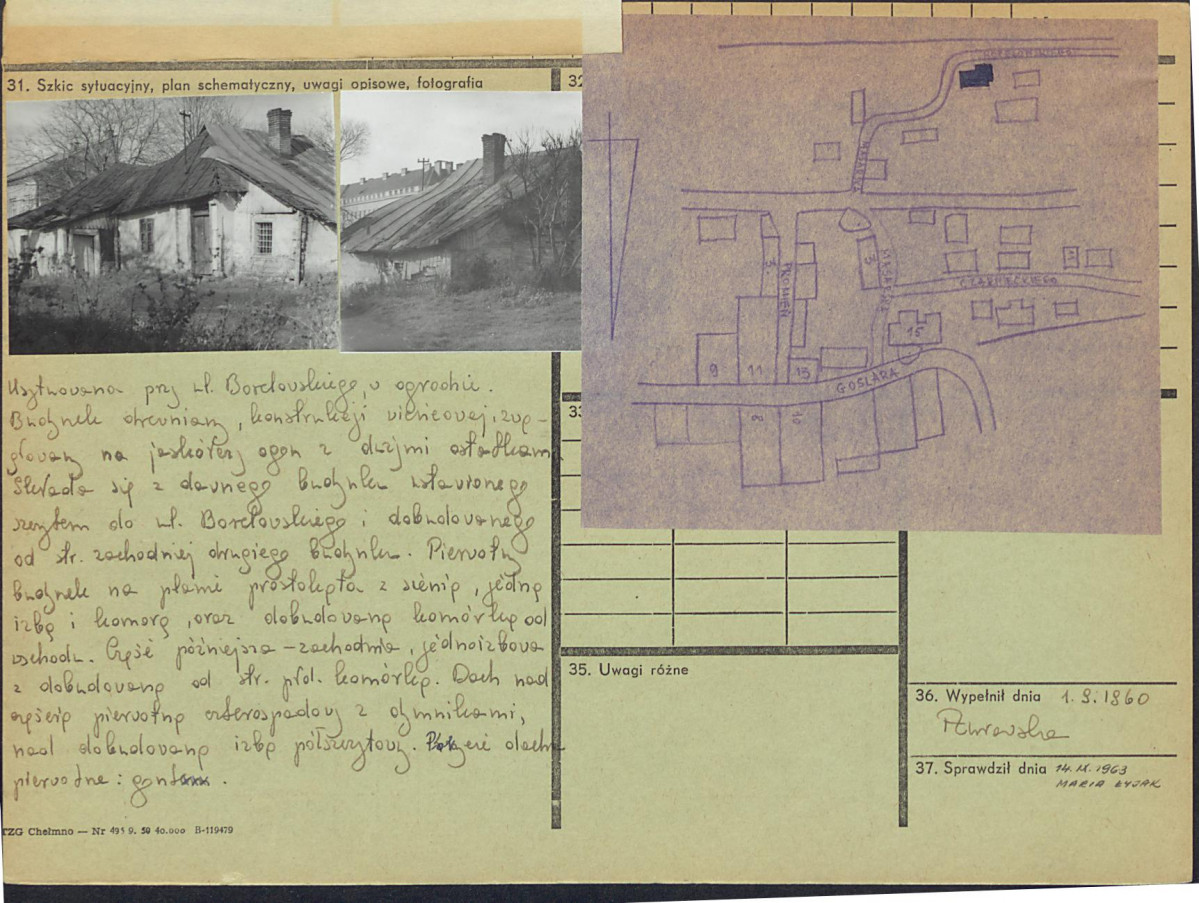 31. Szkic sytuacyjny, plan schematyczny, uwagi opisowe, fotografia
32
Usytuowana przy ul. Borelowskiego, w ogrodzie.
Budynek drewniany, konstrukcji wieńcowej, zwę-
głowany na jaskółczy ogon z dużymi ostatkami.
Składa się z dawnego budynku ustawionego
szczytem do ul. Borelowskiego i dobudowanego
od str. zachodniej drugiego budynku. Pierwotny
budynek na planie prostokąta z sienią, jedną
izbą i komorą, oraz dobudowaną komórką od
wschodu. Część późniejsza – zachodnia, jednoizbowa
z dobudowaną od str. płd. komórką. Dach nad
częścią pierwotną czterospadowy z dymnikami,
nad dobudowaną izbą półszczytowy. Pokrycie dachu
pierwotne : gont.
TZG Chełmno — Nr 495 9. 59 40.000 B-119479
BORELOWSKIEGO
MASARSKA
3
PROMIEŃ
3
MASARSKA
CZARNIECKIEGO
15
9
11
15
GOSLARA
8
10
33
35. Uwagi różne
36. Wypełnił dnia 1. 9. 1960
37. Sprawdził dnia 14. IX. 1963
MARIA ŁYJAK